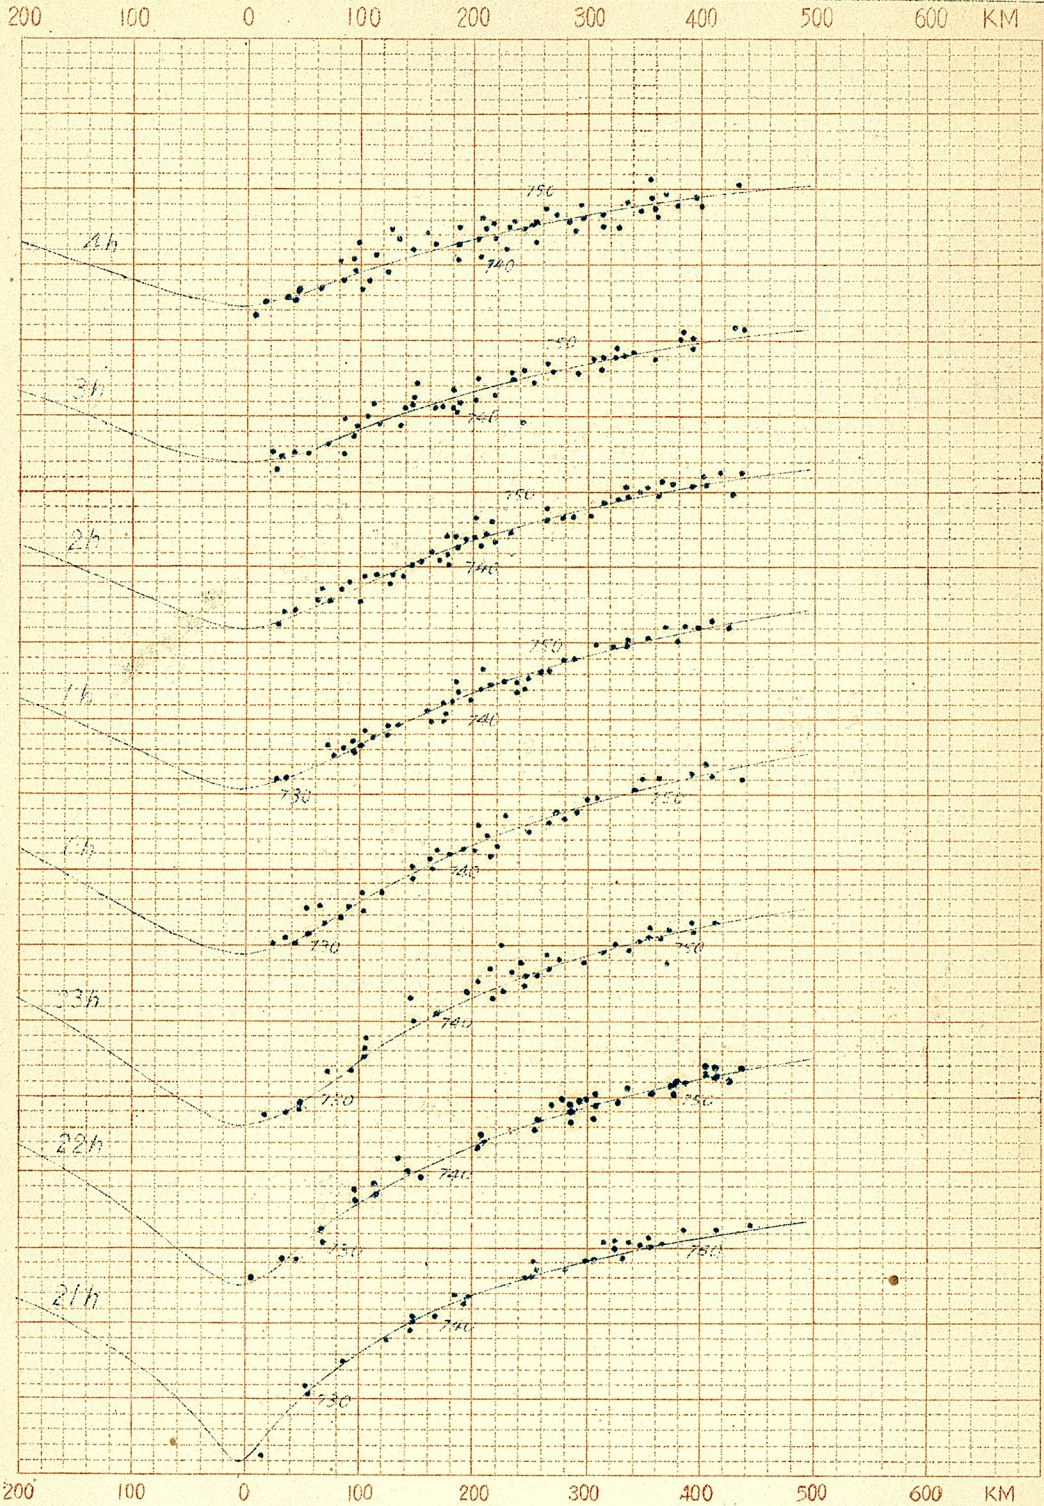 200 100 0 100 200 300 400 500 600 KM
750
4h
740
750
3h
740
750
2h
740
750
1h
740
730
750
0h
740
730
750
23h
740
730
750
22h
740
730
750
21h
740
730
200 100 0 100 200 300 400 500 600 KM